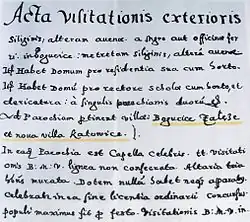 Acta Visitationis exterioris
Siliginis, alteram avenæ. a
in bogucice: metretam Siliginis, alterã avenæ
Ipse Habet Domum pro residentia sua cum horto.
Ipse Habet Domũ pro rectore scholæ cum horto, et
clericatura: à singulis parochianis duos
Ad Parochiam ptinent villæ: Bogucice Zalęze
et nova villa Katowice.
In eadẽ Parochia est Capella Celebris, tt. Visitati
onis B. M. V. lignea non consecrata. Altaria
murata. Dotem nullã habet neqȝ apparatũ.
Celebratur in ea sine licentia ordinarii. Concursus
populi maximus fit festo Visitationis B: M: V: